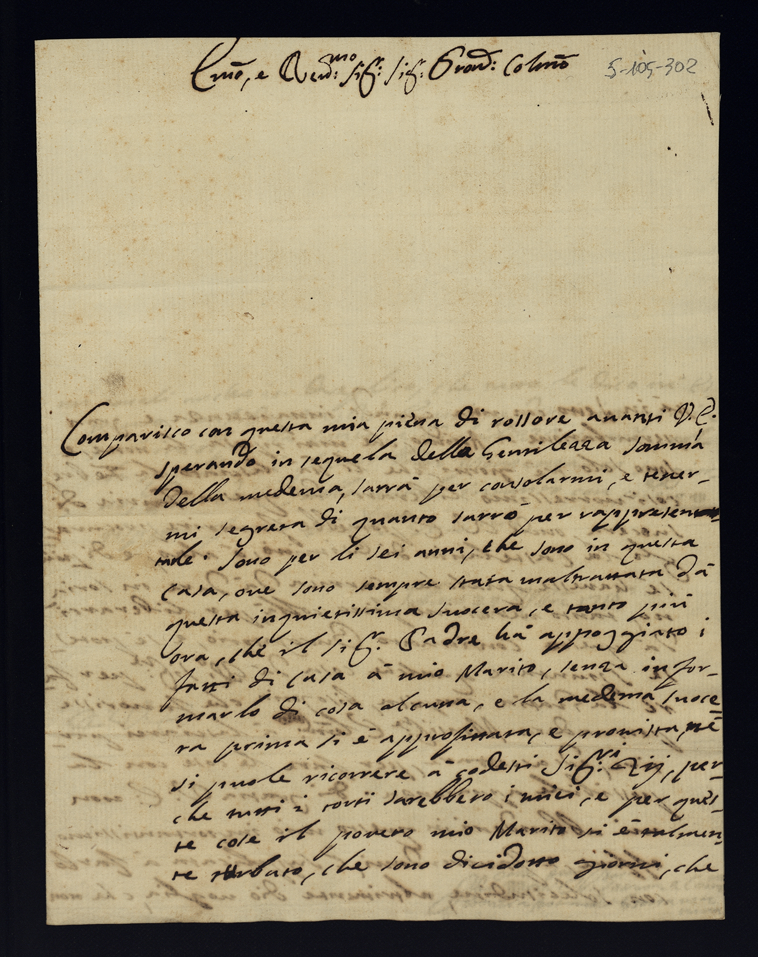 Emõ, e Rend:mo Sig.r Sig.r Prond: Colmõ
5-105-302
Comparisco con questa mia piena di rossore avanti V.E.
sperando in sequela della Gentilezza somma
della medema, sarrà per consolarmi, e tener-
mi segreta di quanto sarrò per rappresen
tale. Sono per li sei anni, che sono in questa
Casa, ove sono sempre stata maltrattata dà
questa inquietissima suocera, e tanto più
ora, che il Sig.r Padre hà appoggiato i
fatti di Casa à mio Marito, senza infor-
marlo di cosa alcuna, e la medema suoce-
ra prima si è approfittata, e provista, nè
si puole ricorrere à codesti Sig.ri Zij, per-
che tutti i torti sarebbero i miei, e per ques-
te cose il povero mio Marito si è talmen-
te turbato, che sono dicidotto giorni, che